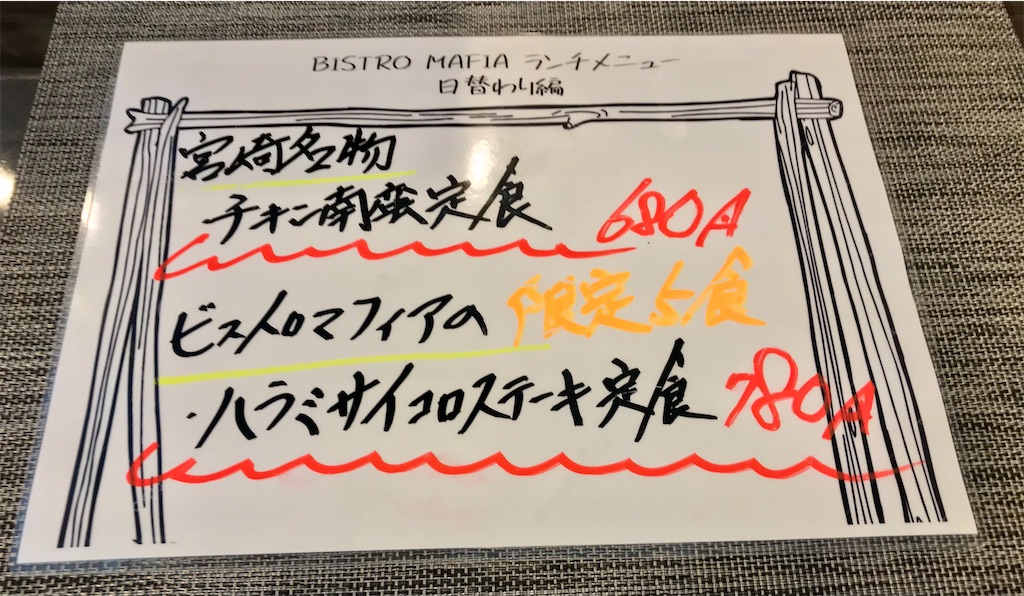 BISTRO MAFIA ランチメニュー
日替わり編
宮崎名物
チキン南蛮定食 680円
ビストロマフィアの 限定5食
・ハラミサイコロステーキ定食 780円